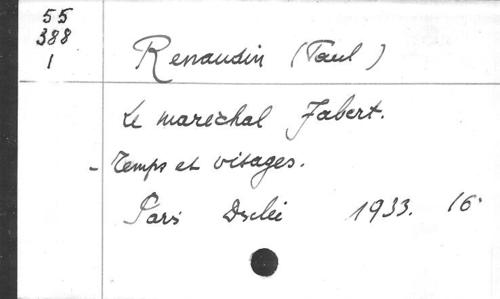 55
388
1
Renaudin (Paul)
Le maréchal Fabert.
- Temps et visages.
Paris Desclée 1933. 16°